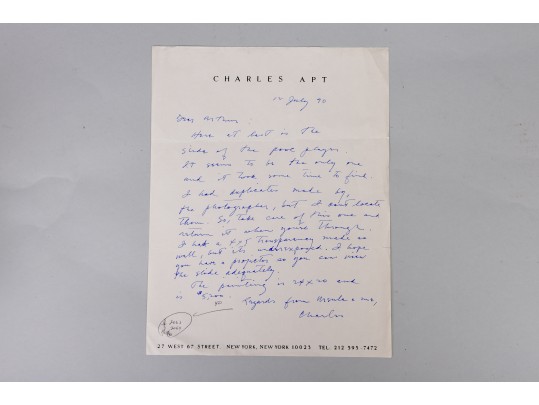 CHARLES APT
July 90
Dear Arthur:
Here at last is the
slide of the pool player.
It seems to be the only one
and it took some time to find.
I had duplicates made by
the photographer, but I can't locate
them. So, take care of this one and
return it when you're through.
I had a 4x5 transparency made as
well, but its underexposed. I hope
you have a projector so you can view
the slide adequately.
The painting is 24x20 and
is
Regards from Ursula & me,
Charles
27 WEST 67 STREET, NEW YORK, NEW YORK 10023 TEL. 212 595-7472